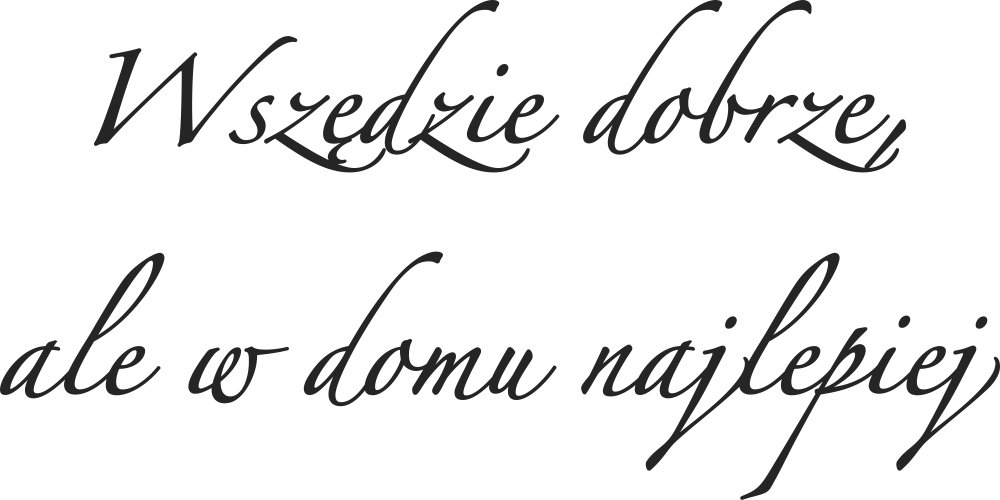 Wszędzie dobrze,
ale w domu najlepiej